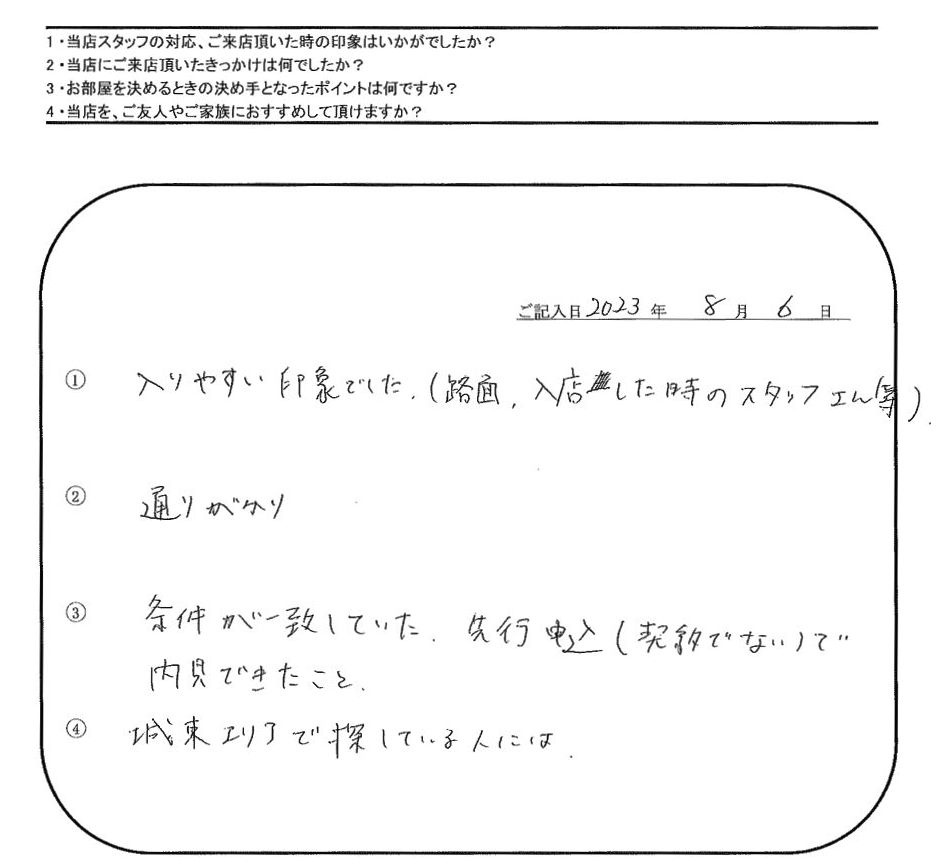 1・当店スタッフの対応、ご来店頂いた時の印象はいかがでしたか？
2・当店にご来店頂いたきっかけは何でしたか？
3・お部屋を決めるときの決め手となったポイントは何ですか？
4・当店を、ご友人やご家族におすすめして頂けますか？
ご記入日 2023 年 8 月 6 日
① 入りやすい印象でした.(路面, 入店した時のスタッフさん等).
② 通りがかり
③ 条件が一致していた. 先行申込(契約でない)で
内見できたこと.
④ 城東エリアで探している人には.